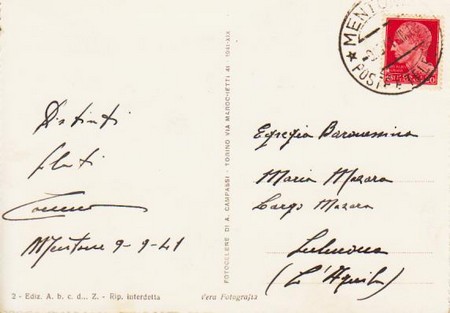 Distinti
saluti
Mentone 9-9-41
2 - Ediz. A. b. c. d... Z. - Rip. interdetta
FOTOCELERE DI A. CAMPASSI - TORINO VIA MAROCHETTI 41
Vera Fotografia
MENTO
POSTE
Egregia Baronessina
Maria Mazara
Largo Mazara
Sulmona
(L'Aquila)